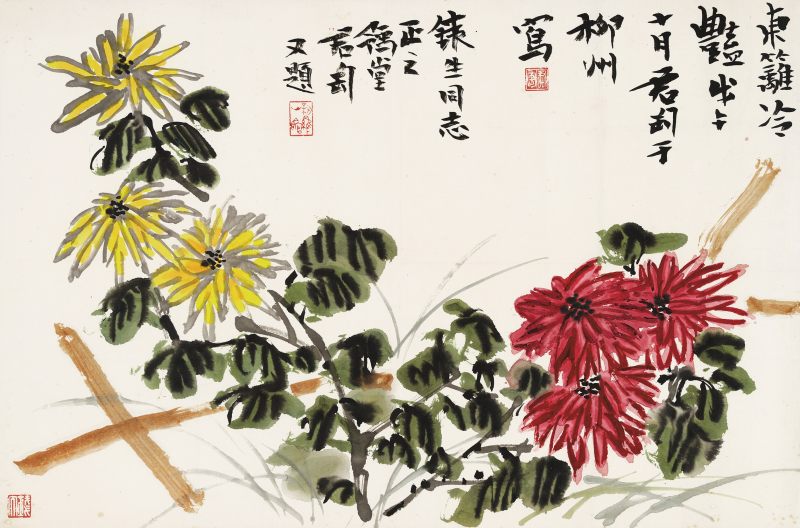 東籬冷
豔戊午
十月君匋于
柳州
寫
銕生同志
正之
豫堂
君匋
又題